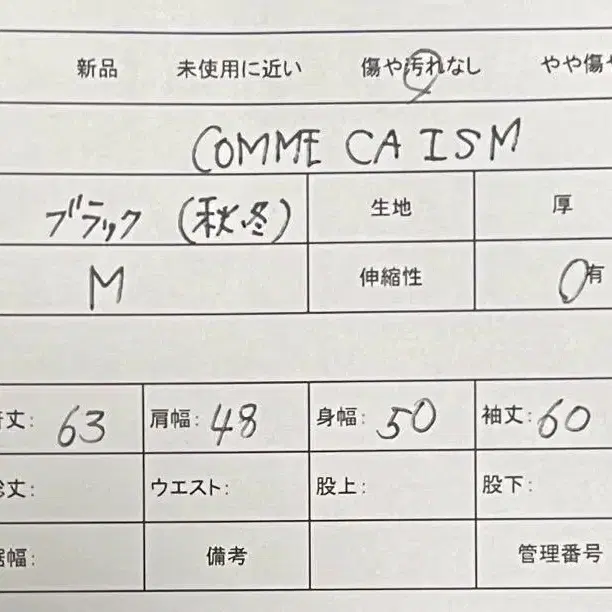 新品 未使用に近い 傷や汚れなし やや傷や
COMME CA ISM
ブラック (秋冬) 生地 厚
M 伸縮性 有
着丈: 63 肩幅: 48 身幅: 50 袖丈: 60
総丈: ウエスト: 股上: 股下:
裾幅: 備考 管理番号